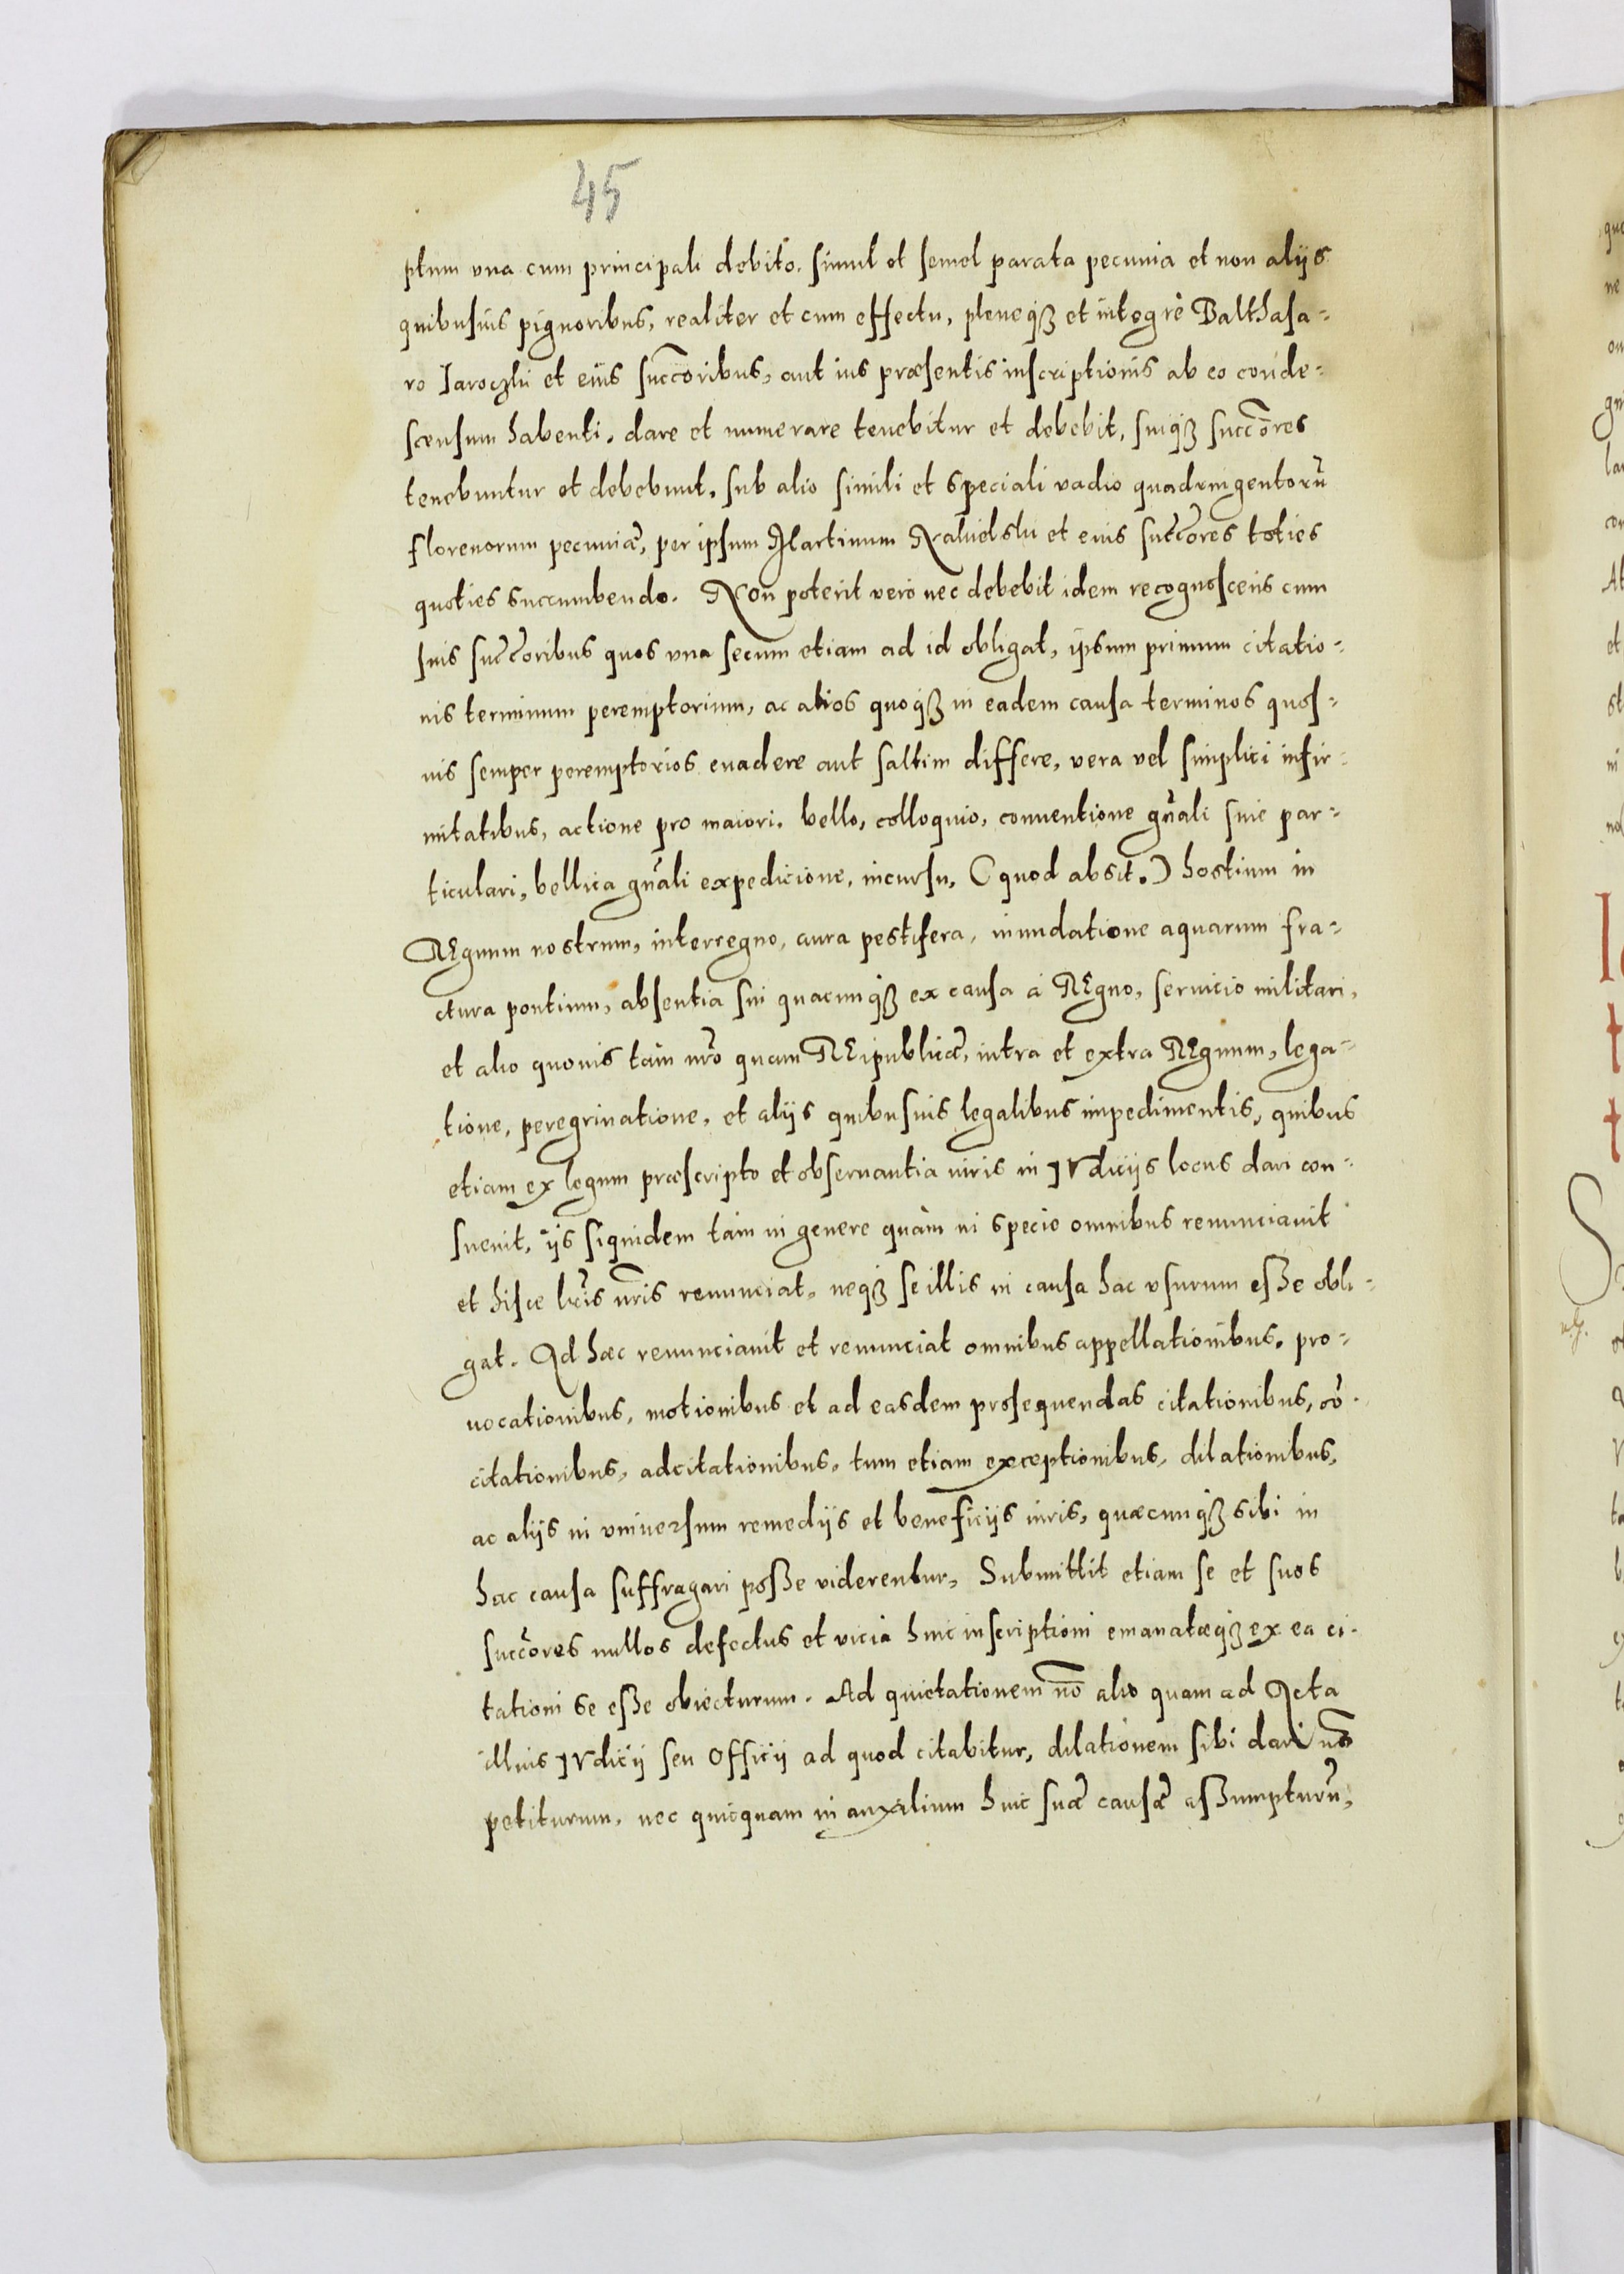 45
ptum vna cum principali debito. simul et semel parata pecunia et non alijs
quibusuis pignoribus, realiter et cum effectu, pleneq̃ꝫ et integrè Balthasa-
ro Iaroczki et eius succ̃oribus, aut ius præsentis inscriptionis ab eo conde-
scensum habenti. dare et numerare tenebitur et debebit, suiq̃ꝫ succ̃ores
tenebuntur et debebunt. sub alio simili et speciali vadio quadringentorũ
florenorum pecuniæ, per ipsum Martinum et eius succ̃ores toties
quoties succumbendo. Non poterit vero nec debebit idem recognoscens cum
suis succ̃oribus quos vna secum etiam ad id obligat, ipsum primum citatio-
nis terminum peremptorium, ac alios quoq̃ꝫ in eadem causa terminos quos-
uis semper peremptorios euadere aut saltim differe, vera vel simplici infir-
mitatibus, actione pro maiori. bello, colloquio, conuentione gñali siue par-
ticulari, bellica gñali expedicione, incursu, (quod absit.) hostium in
REgnum nostrum, interregno, aura pestifera, inundatione aquarum fra-
ctura pontium, absentia sui quacunq̃ꝫ ex causa à REgno, seruicio militari,
et alio quouis tàm nr̃o quam REipublicæ, intra et extra REgnum, lega-
tione, peregrinatione, et alijs quibusuis legalibus impedimentis, quibus
etiam ex legum præscripto et obseruantia iuris in IVdicijs locus dari con-
sueuit, ijs siquidem tàm in genere quàm in specie omnibus renunciauit
et hisce lr̃is nr̃is renunciat, neq̃ꝫ se illis in causa hac vsurum eße obli-
gat. Ad hæc renunciauit et renunciat omnibus appellationibus, pro-
uocationibus, motionibus et ad easdem prosequendas citationibus, cõ-
citationibus, adcitationibus, tum etiam exceptionibus, dilationibus,
ac alijs in vniuersum remedijs et beneficijs iuris, quæcunq̃ꝫ sibi in
hac causa suffragari poße viderentur, Submittit etiam se et suos
succ̃ores nullos defectus et vicia huic inscriptioni emanatæq̃ꝫ ex ea ci-
tationi se eße obiecturum. Ad quietationem nõ alio quam ad Acta
illius IVdicij seu Officij ad quod citabitur, dilationem sibi dari nõ
petiturum, nec quicquam in auxilium huic suæ causæ aßumpturũ,